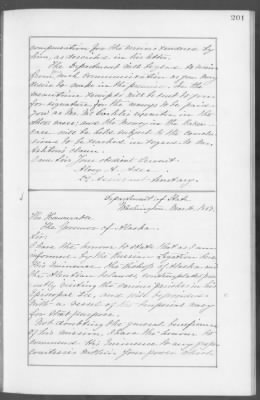 201
compensation for the services rendered by
him, as described in his letter.
The Department will be glad to receive
from such communication as you may
desire to make in the premises. In the
meantime receipts will be sent to you
for signature, for the moneys to be paid
you as Mr.
above more; and the money in the
case will be held subject to the conclu-
sions to be reached in regard to Mr.
claim.
I am Sir, Your obedient Servant,
Alvey A. Adee
Assistant Secretary.
Department of State
Washington
The Honorable
The Governor of Alaska.
Sir:
I have the honor to state that as I am
informed by the Russian Legation here
His Eminence the Bishop of Alaska and
the Aleutian Islands, contemplates pres-
ently visiting the various parishes in his
Episcopal See, and will be provided
with a vessel of the Imperial navy
for that purpose.
Not doubting the general beneficence
of his mission, I have the honor to
commend His Eminence to any proper
courtesies within your power which